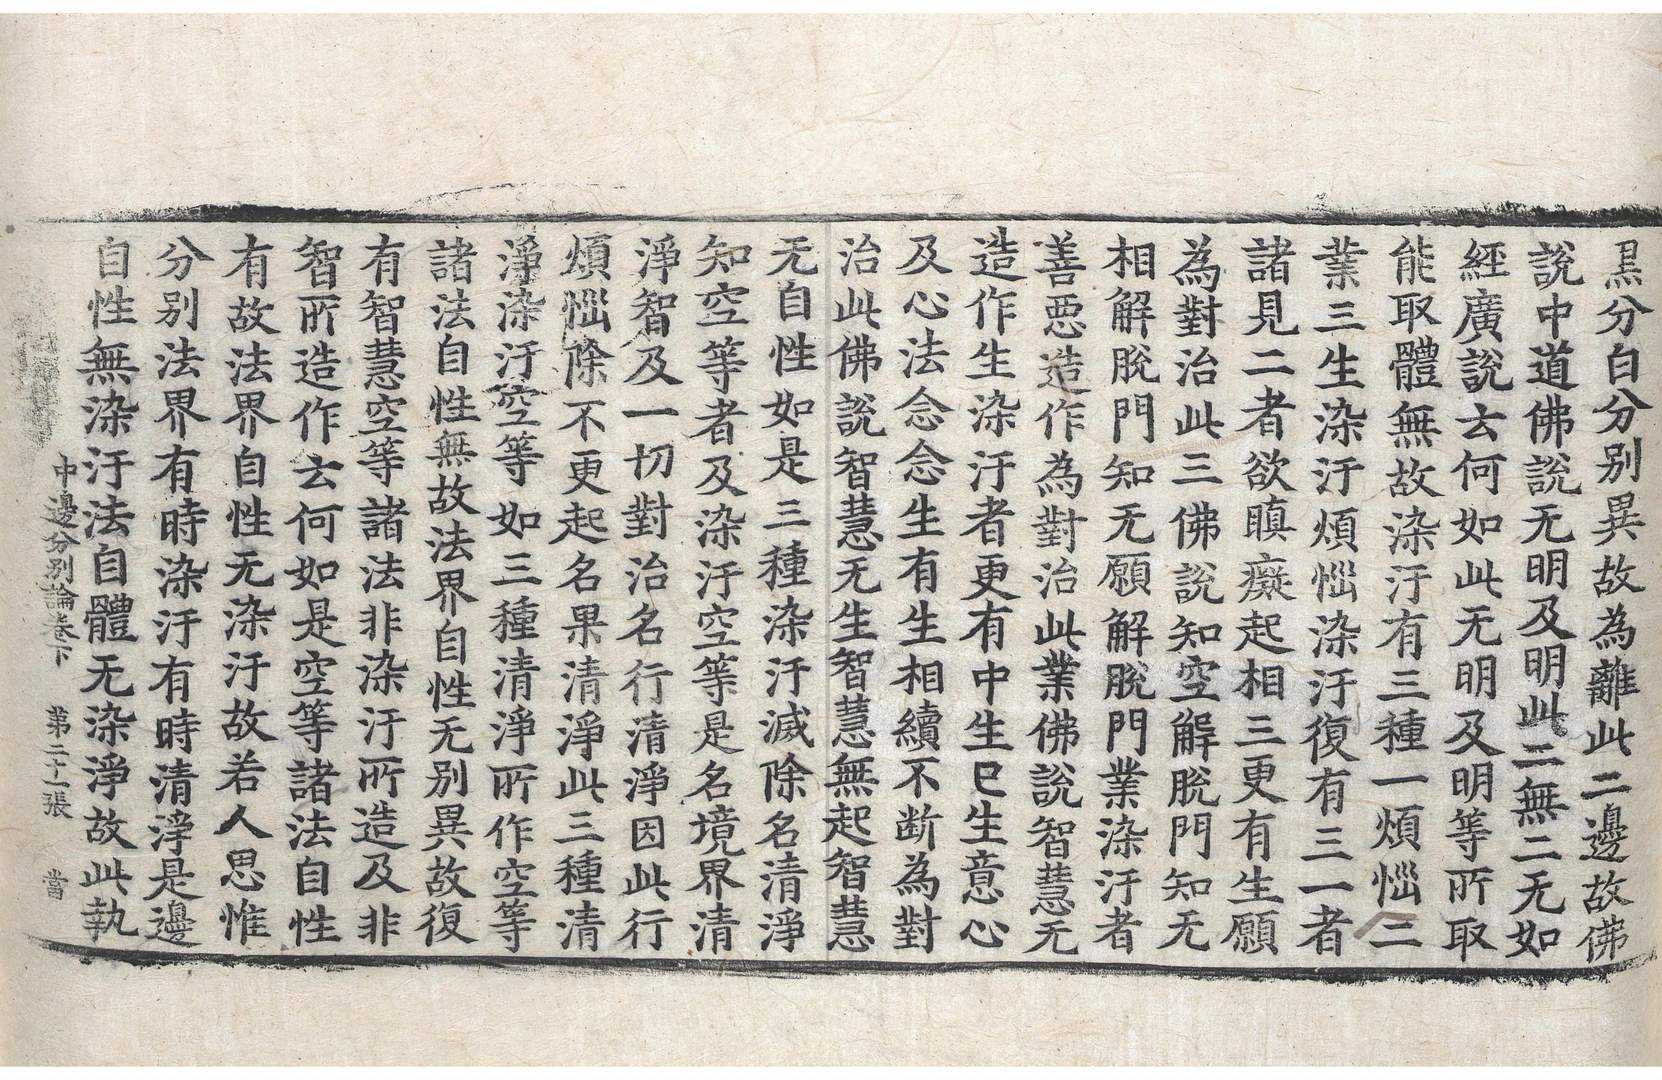 黑分白分別異故為離此二邊故佛
說中道佛說无明及明此二無二无如
經廣說云何如此无明及明等所取
能取體無故染汙有三種一煩惱二
業三生染汙煩惱染汙復有三一者
諸見二者欲瞋癡起相三更有生願
為對治此三佛說知空解脫門知无
相解脫門知无願解脫門業染汙者
善惡造作為對治此業佛說智慧无
造作生染汙者更有中生巳生意心
及心法念念生有生相續不断為對
治此佛說智慧无生智慧無起智慧
无自性如是三種染汙滅除名清淨
知空等者及染汙空等是名境界清
淨智及一切對治名行清淨因此行
煩惱除不更起名果清淨此三種清
淨染汙空等如三種清淨所作空等
諸法自性無故法界自性无別異故復
有智慧空等諸法非染汙所造及非
智所造作云何如是空等諸法自性
有故法界自性无染汙故若人思惟
分別法界有時染汙有時清淨是邊
自性無染汙法自體无染淨故此執
中邊分別論卷下 第二十一張 當